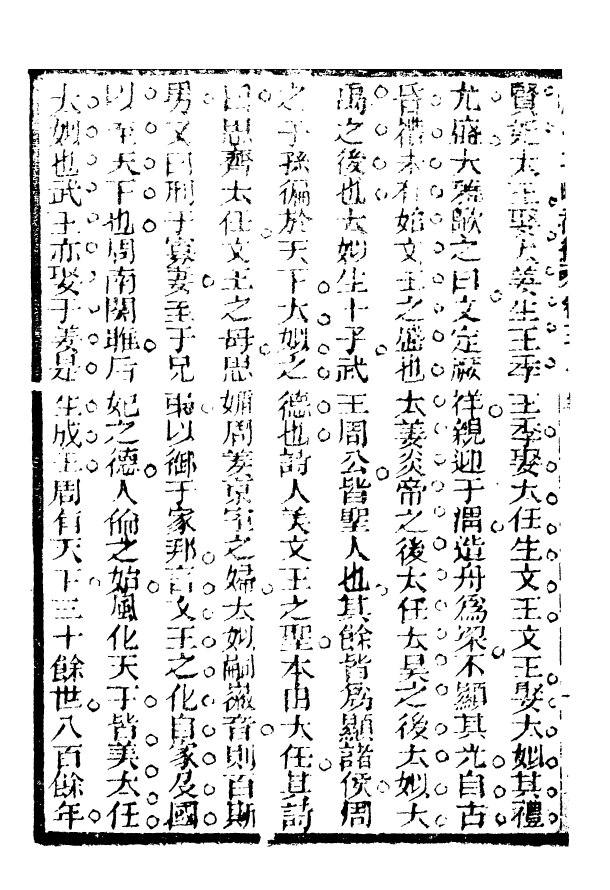 賢妃太王娶太姜生王季王季娶太任生文王文王娶太姒其禮
尤盛大雅歌之曰文定厥祥親迎于渭造舟爲梁不顯其光自古
昏禮未有始文王之盛也太姜炎帝之後太任太昊之後太姒大
禹之後也太姒生十子武王周公皆聖人也其餘皆爲顯諸侯周
之子孫徧於天下太姒之德也詩人美文王之聖本由太任其詩
曰思齊太任文王之母思媚周姜京室之婦太姒嗣徽音則百斯
男又曰刑于寡妻至于兄弟以御于家邦言文王之化自家及國
以至天下也周南關雎后妃之德人倫之始風化天下皆美太任
太姒也武王亦娶于姜是生成王周有天下三十餘世八百餘年